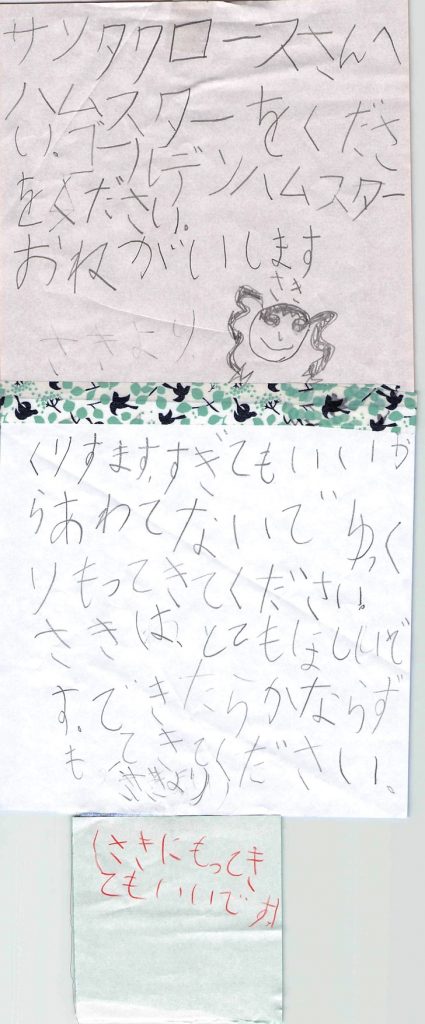 サンタクロースさんへ
ハムスターをくださ
い。ゴールデンハムスター
をください。
おねがいします
さき
さきより
くりすます、すぎてもいいか
らあわてないで ゆっく
りもってきてください。
さきは、とてもほしいで
す。できたらかならず
もてきてください。
(さきより)
(さきにもってき
てもいいです)